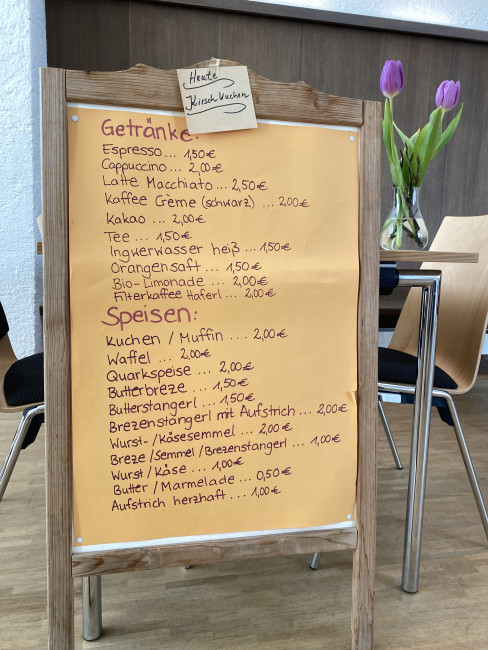 Heute
Kirschkuchen
Getränke:
Espresso... 1,50€
Cappuccino ... 2,00€
Latte Macchiato ... 2,50€
Kaffee Crème (schwarz) ... 2,00€
Kakao ... 2,00€
Tee ... 1,50€
Ingwerwasser heiß ... 1,50€
Orangensaft ... 1,50€
Bio-Limonade ... 2,00€
Filterkaffee Haferl ... 2,00€
Speisen:
Kuchen / Muffin ... 2,00€
Waffel ... 2,00€
Quarkspeise ... 2,00€
Butterbreze ... 1,50€
Butterstangerl ... 1,50€
Brezenstangerl mit Aufstrich ... 2,00€
Wurst-/Käsesemmel ... 2,00€
Breze/Semmel/Brezenstangerl ... 1,00€
Wurst/Käse ... 1,00€
Butter/Marmelade ... 0,50€
Aufstrich herzhaft ... 1,00€